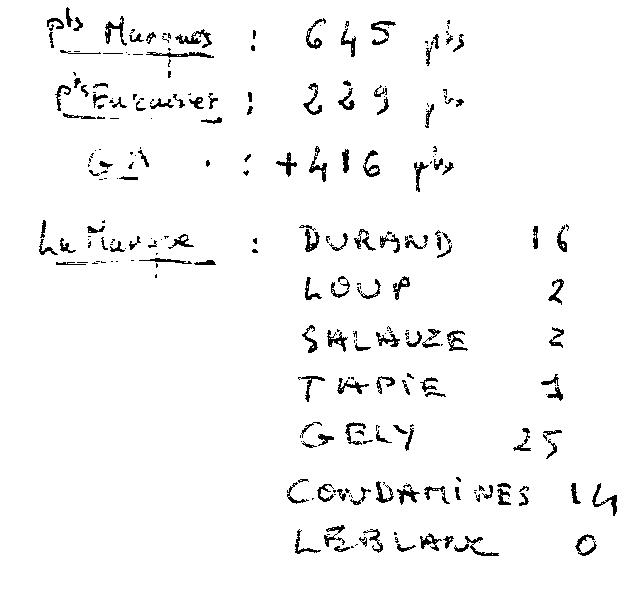 pts Marqués : 645 pts
pts Encaissés : 229 pts
GA : +416 pts
La Marque : DURAND 16
LOUP 2
SALAUZE 2
TAPIE 1
GELY 25
CONDAMINES 14
LEBLANC 0